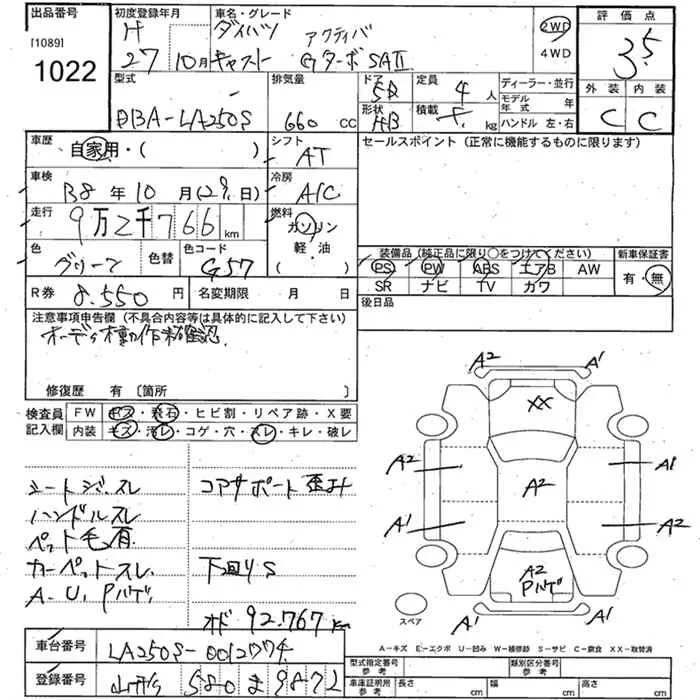 出品番号
[1089]
1022
初度登録年月
H
27 10月
車名・グレード
ダイハツ アクティバ
キャスト Gターボ SAⅡ
2WD
4WD
評価点
3.5
外装 内装
C C
型式
DBA-LA250S
排気量
660 CC
ドア
5D
形状
HB
定員
4人
積載
kg
ディーラー・並行
モデル年式 年
ハンドル 左・右
車歴
自家用・( )
シフト
AT
セールスポイント(正常に機能するものに限ります)
車検
R8年10月(29日)
冷房
A/C
走行
9万2千766km
燃料
ガソリン
軽・油
( )
色
グリーン
色替
色コード
G57
装備品(純正品に限り○をつけてください)
PS PW ABS エアB AW
SR ナビ TV カワ
新車保証書
有・無
R券 8.550円
名変期限 月 日
後日品
注意事項申告欄(不具合内容等は具体的に記入して下さい)
オーディオ動作未確認
修復歴 有〔箇所 〕
検査員記入欄
FW キズ・飛石・ヒビ割・リペア跡・X要
内装 キズ・汚レ・コゲ・穴・スレ・キレ・破レ
シートシワ、スレ
ハンドルスレ
ペット毛有
カーペットスレ
A.U、Pハゲ
コアサポート歪み
下回りS
オド 92.767km
A2 A1
XX
A2 A1
A2
A1 A2
A2
Pハゲ
A1 A1
スペア
A-キズ E-エクボ U-凹み W-補修跡 S-サビ C-腐食 XX-取替済
車台番号
LA250S-0012774
登録番号
山形 580 ま 9872
型式指定番号 参考
類別区分番号 参考
車庫証明用 参考
長さ cm
幅 cm
高さ cm